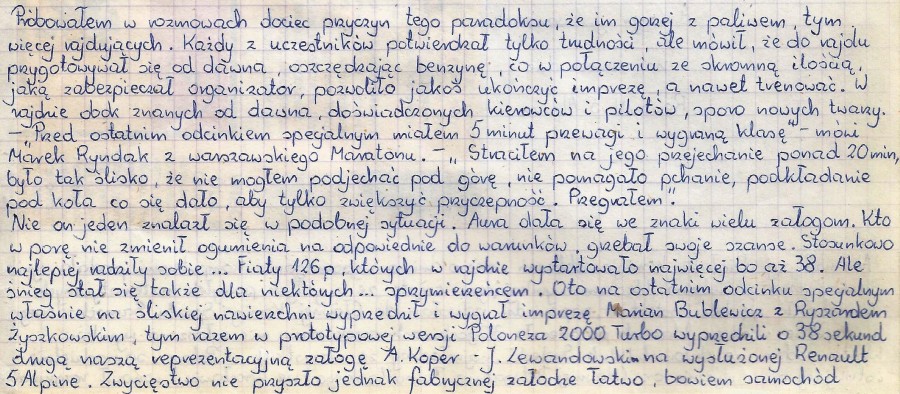 Próbowałem w rozmowach dociec przyczyn tego paradoksu, że im gorzej z paliwem, tym
więcej rajdujących. Każdy z uczestników potwierdzał tylko trudności, ale mówił, że do rajdu
przygotowywał się od dawna oszczędzając benzynę, co w połączeniu ze skromną ilością,
jaką zabezpieczał organizator, pozwoliło jakoś ukończyć imprezę, a nawet trenować. W
rajdzie obok znanych od dawna, doświadczonych kierowców i pilotów, sporo nowych twarzy.
- „Przed ostatnim odcinkiem specjalnym miałem 5 minut przewagi i wygraną klasę" - mówi
Marek Ryndak z warszawskiego Maratonu. - „Straciłem na jego przejechanie ponad 20 min,
było tak ślisko, że nie mogłem podjechać pod górę, nie pomagało pchanie, podkładanie
pod koła co się dało, aby tylko zwiększyć przyczepność. Przegrałem".
Nie on jeden znalazł się w podobnej sytuacji. Aura dała się we znaki wielu załogom. Kto
w porę nie zmienił ogumienia na odpowiednie do warunków, grzebał swoje szanse. Stosunkowo
najlepiej radziły sobie... Fiaty 126p, których w rajdzie wystartowało najwięcej bo aż 38. Ale
śnieg stał się także dla niektórych... sprzymierzeńcem. Oto na ostatnim odcinku specjalnym
właśnie na śliskiej nawierzchni wyprzedził i wygrał imprezę Marian Bublewicz z Ryszardem
Żyszkowskim, tym razem w prototypowej wersji Poloneza 2000 Turbo wyprzedzili o 38 sekund
drugą naszą reprezentacyjną załogę A. Koper - J. Lewandowski na wysłużonej Renault
5 Alpine. Zwycięstwo nie przyszło jednak fabrycznej załodze łatwo, bowiem samochód